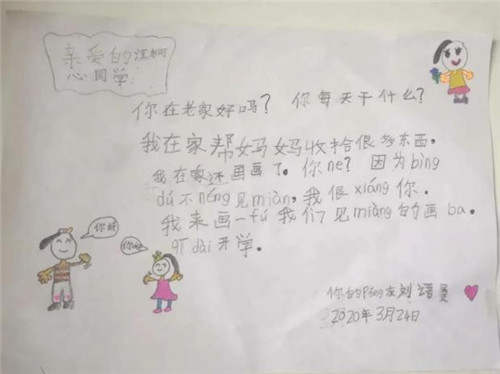 亲爱的汪
心同学:
你在老家好吗? 你每天干什么?
我在家帮妈妈收拾很多东西,
我在家还画画了。你ne? 因为bìng
dú不néng见miàn,我很xiáng你.
我来画一fú我们见miàng的画ba.
dài开学.
你好
你好
你的péng友刘
2020年3月24日